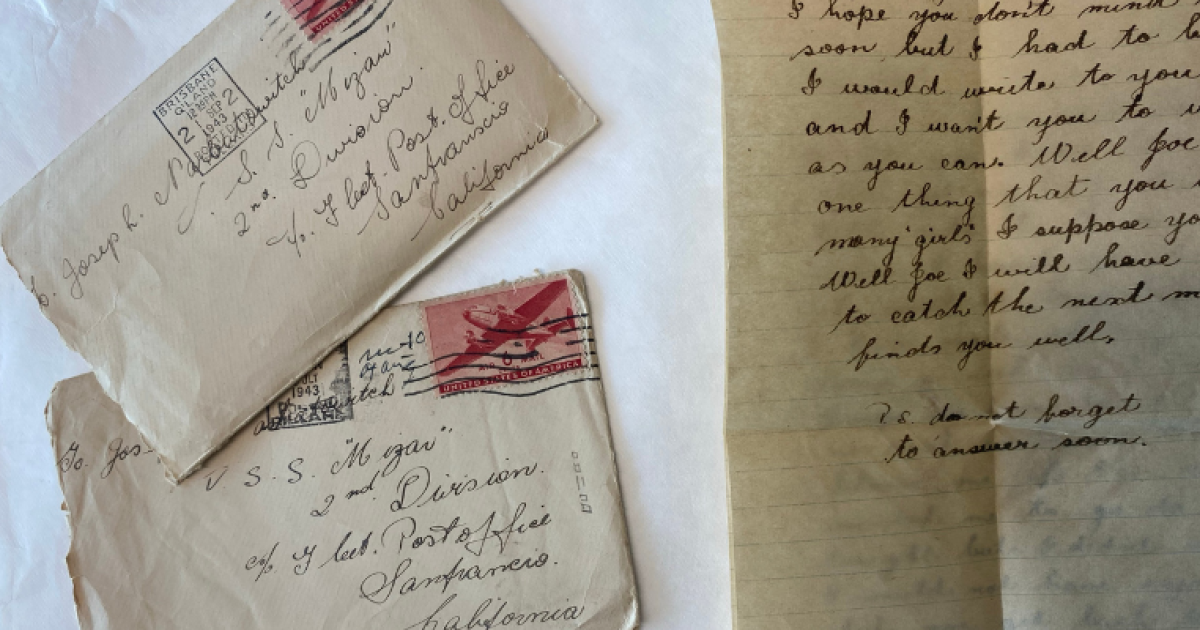 UNITED STATES
BRISBANE
QLAND
12 30 PM
2 SEP 2
1943
To. Joseph L.
U. S. S. "Mizar"
2nd. Division.
c/o. Fleet. Post. Office
Sanfranscio
California
6
UNITED STATES OF AMERICA
1943
To. Jos
U. S. S. "Mizar"
2nd. Division.
c/o. Fleet. Post office
Sanfrancio.
California
I hope you don't mind
soon but I had to
I would write to you
and I want you to
as you can. Well Joe
one thing that you
many "girls" I suppose
Well Joe I will have
to catch the next
finds you well.
P.S. do not forget
to answer soon.